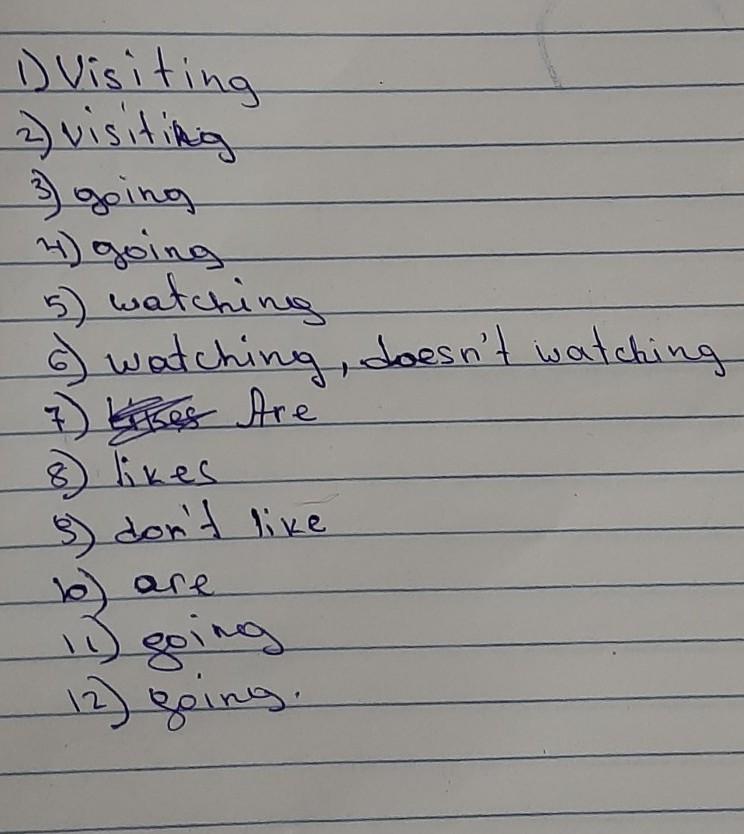 1) Visiting
2) visiting
3) going
4) going
5) watching
6) watching, doesn't watching
7) Are
8) likes
9) don't like
10) are
11) going
12) going.